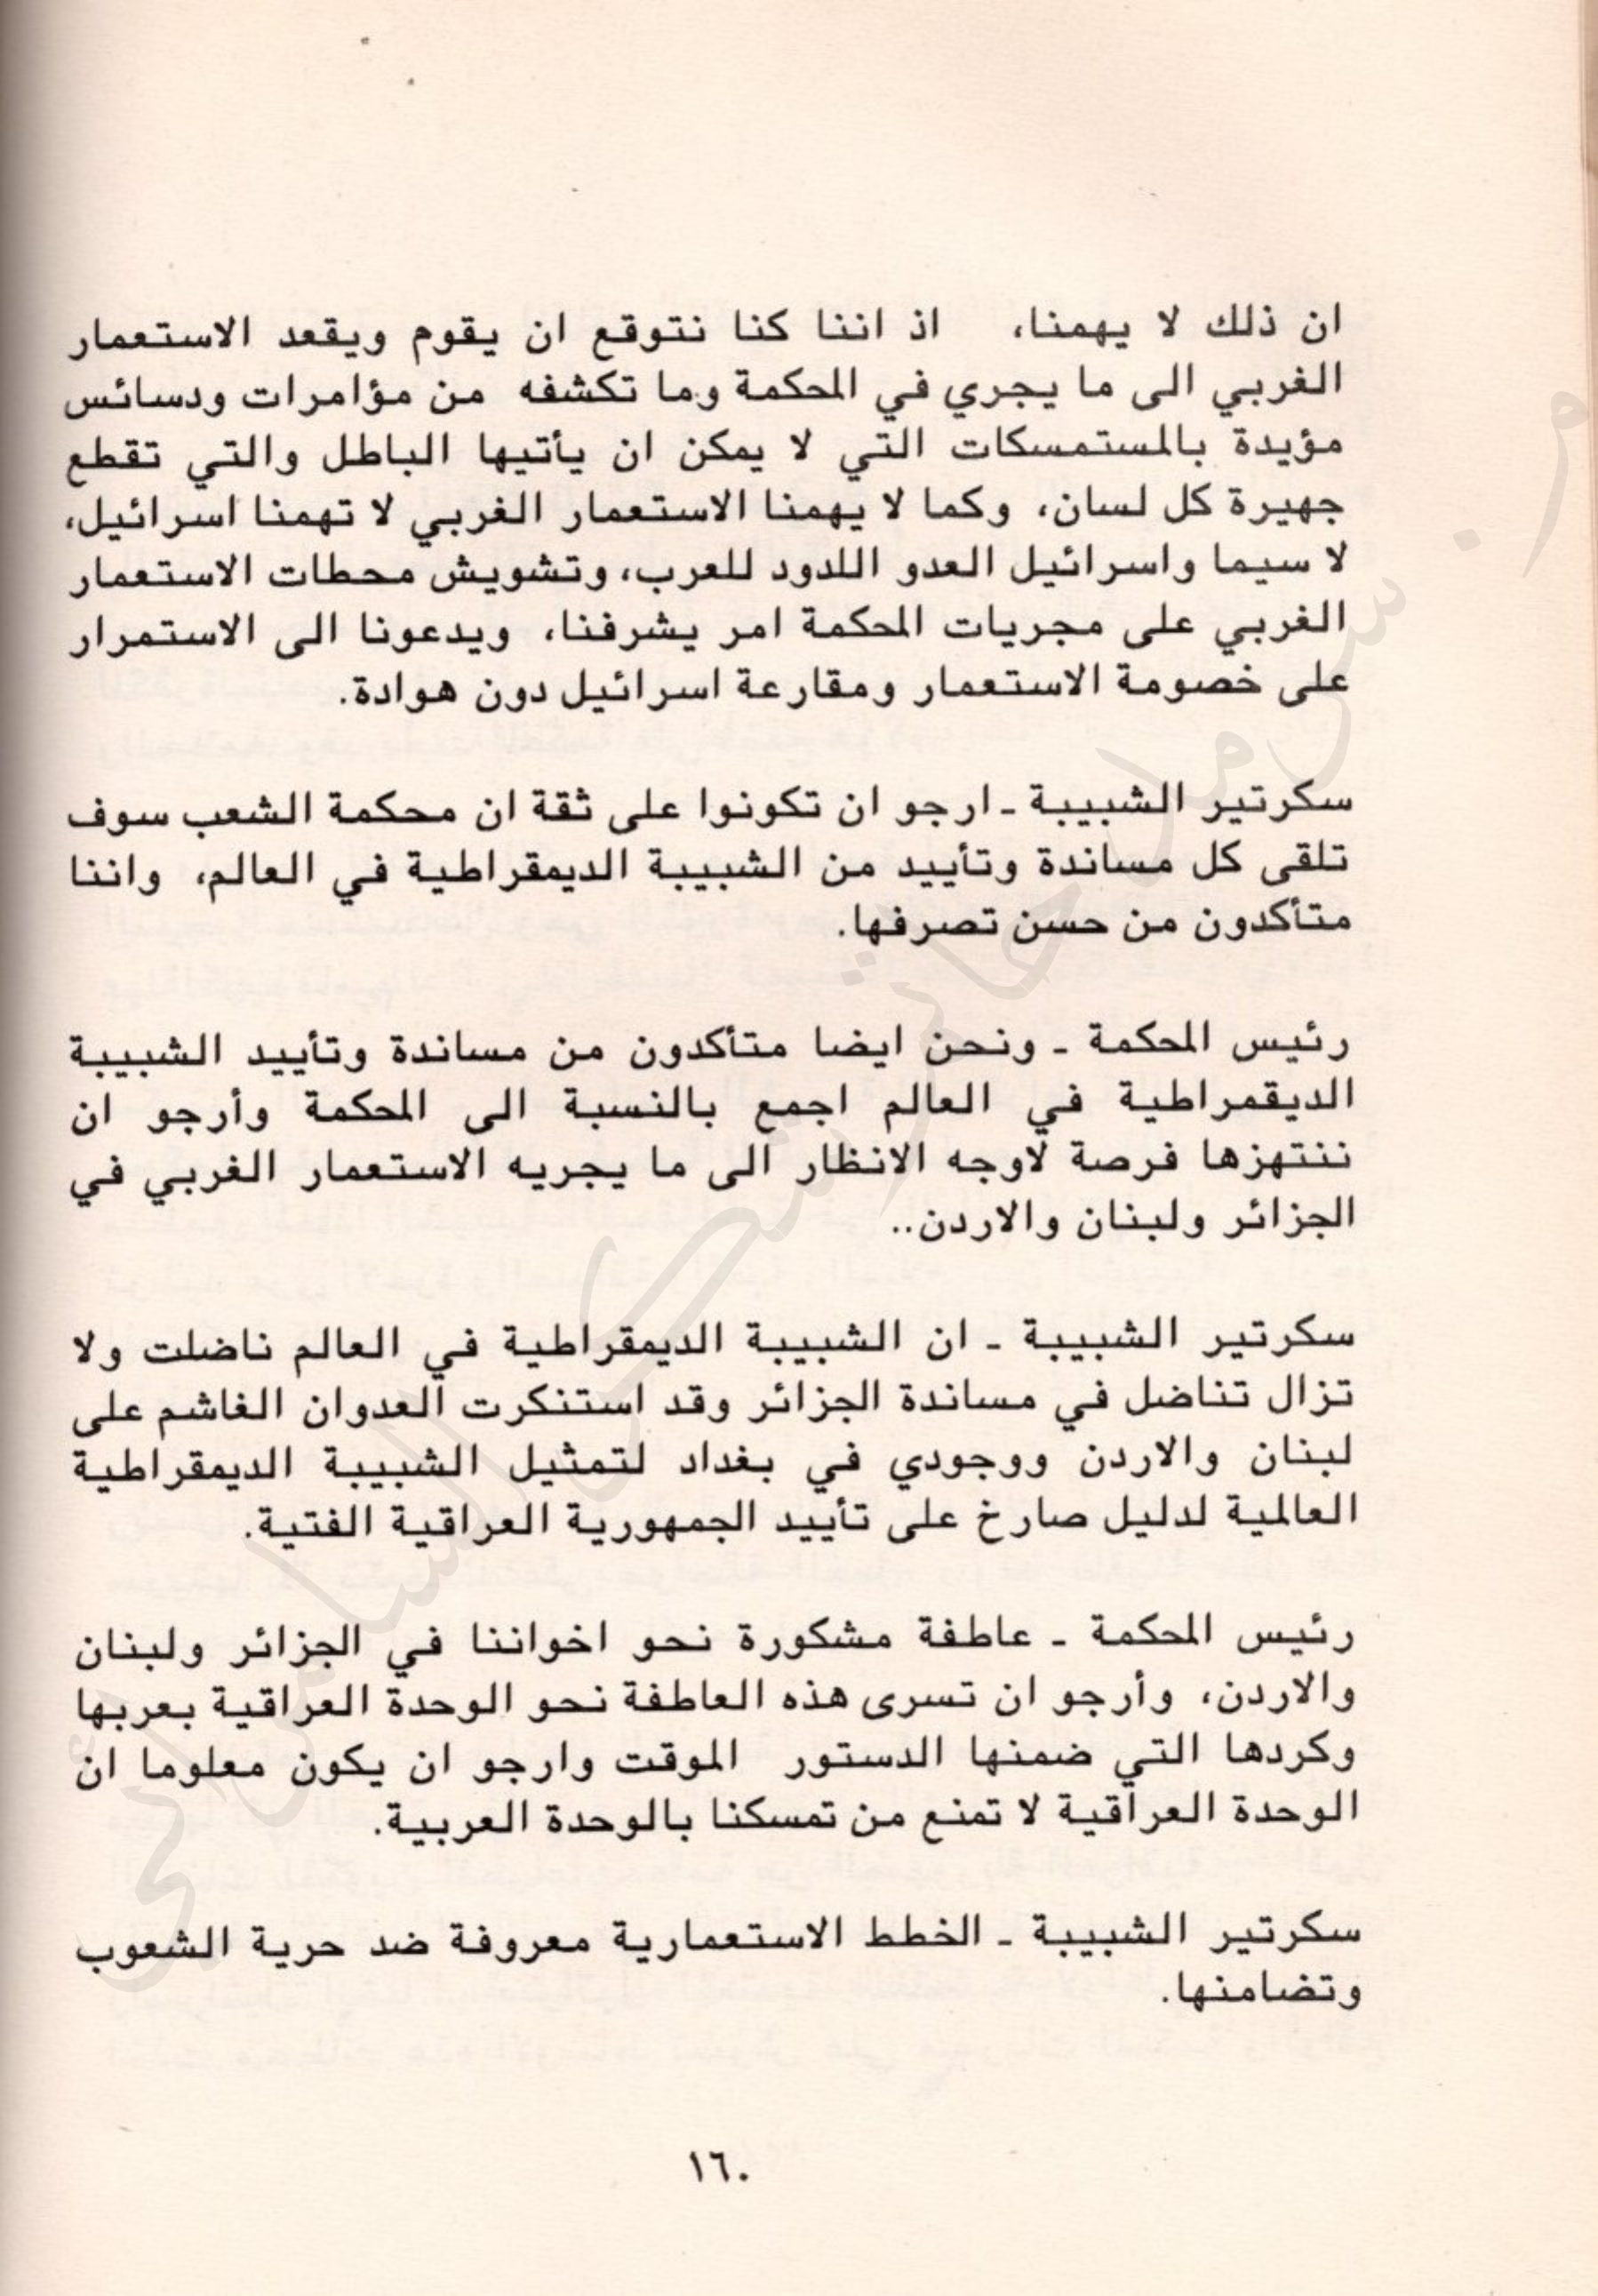 ان ذلك لا يهمنا، اذ اننا كنا نتوقع ان يقوم ويقعد الاستعمار
الغربي الى ما يجري في المحكمة وما تكشفه من مؤامرات ودسائس
مؤيدة بالمستمسكات التي لا يمكن ان يأتيها الباطل والتي تقطع
جهيرة كل لسان، وكما لا يهمنا الاستعمار الغربي لا تهمنا اسرائيل،
لا سيما واسرائيل العدو اللدود للعرب، وتشويش محطات الاستعمار
الغربي على مجريات المحكمة امر يشرفنا، ويدعونا الى الاستمرار
على خصومة الاستعمار ومقارعة اسرائيل دون هوادة.
سكرتير الشبيبة ـ ارجو ان تكونوا على ثقة ان محكمة الشعب سوف
تلقى كل مساندة وتأييد من الشبيبة الديمقراطية في العالم، واننا
متأكدون من حسن تصرفها.
رئيس المحكمة ـ ونحن ايضا متأكدون من مساندة وتأييد الشبيبة
الديقمراطية في العالم اجمع بالنسبة الى المحكمة وأرجو ان
ننتهزها فرصة لاوجه الانظار الى ما يجريه الاستعمار الغربي في
الجزائر ولبنان والاردن..
سكرتير الشبيبة ـ ان الشبيبة الديمقراطية في العالم ناضلت ولا
تزال تناضل في مساندة الجزائر وقد استنكرت العدوان الغاشم على
لبنان والاردن ووجودي في بغداد لتمثيل الشبيبة الديمقراطية
العالمية لدليل صارخ على تأييد الجمهورية العراقية الفتية.
رئيس المحكمة ـ عاطفة مشكورة نحو اخواننا في الجزائر ولبنان
والاردن، وأرجو ان تسرى هذه العاطفة نحو الوحدة العراقية بعربها
وكردها التي ضمنها الدستور الموقت وارجو ان يكون معلوما ان
الوحدة العراقية لا تمنع من تمسكنا بالوحدة العربية.
سكرتير الشبيبة ـ الخطط الاستعمارية معروفة ضد حرية الشعوب
وتضامنها.
١٦٠